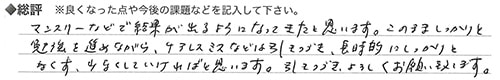 ◆総評　※良くなった点や今後の課題などを記入して下さい。
マンスリーなどで結果が出るようになってきたと思います。このまましっかりと
勉強を進めながら、ケアレスミスなどは引きつづき、長時的にしっかりと
なくす、少なくしていければと思います。引きつづき、よろしくお願い致します。